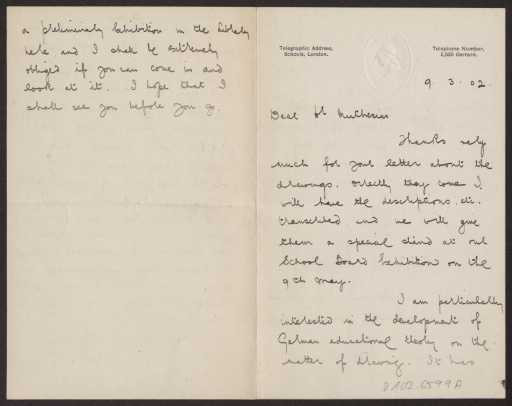 Telegraphic Address,
Schovis, London.
Telephone Number,
9. 3. 02.
Dear Mr Muthesius
Thanks very
much for your letter about the
drawings. Directly they come I
will have the descriptions, etc.
transcribed and we will give
them a special stand at our
School Board Exhibition on the
9th May.
I am particularly
interested in the development of
German educational theory on the
matter of drawing. It has
a preliminary Exhibition in the Library
here and I shall be extremely
obliged if you can come in and
look at it. I hope that I
shall see you before you go.